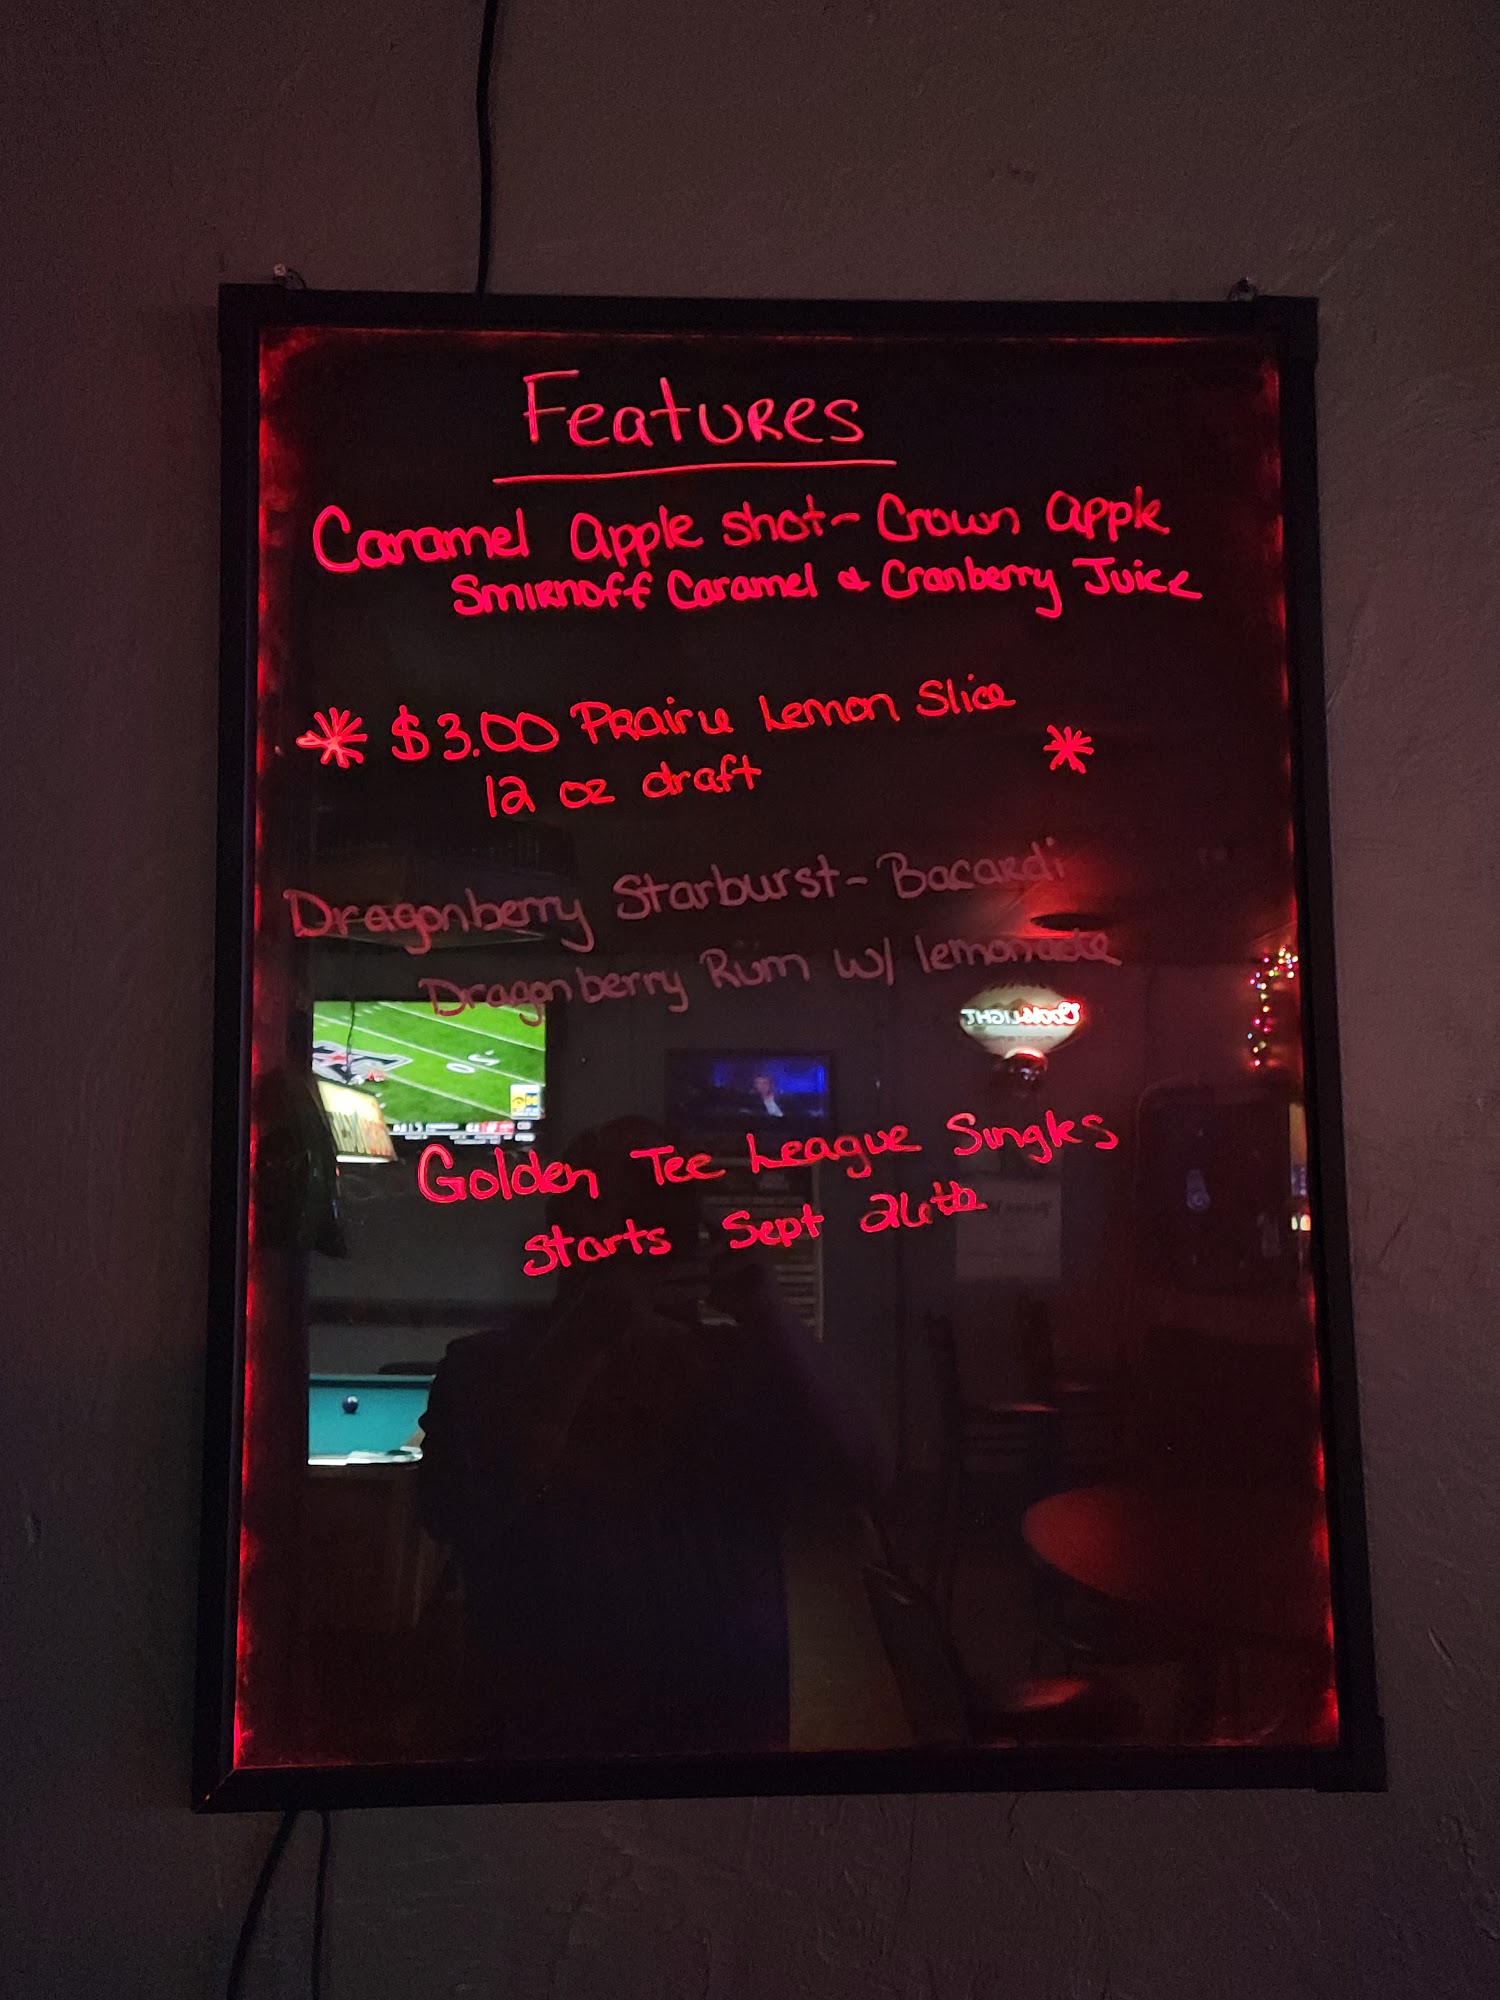 Features
Caramel apple shot- Crown apple
Smirnoff Caramel & Cranberry Juice
* $3.00 Prairie Lemon Slice *
12 oz draft
Dragonberry Starburst- Bacardi
Dragonberry Rum w/ lemonade
COORS LIGHT
Golden Tee League Singles
starts Sept 26th